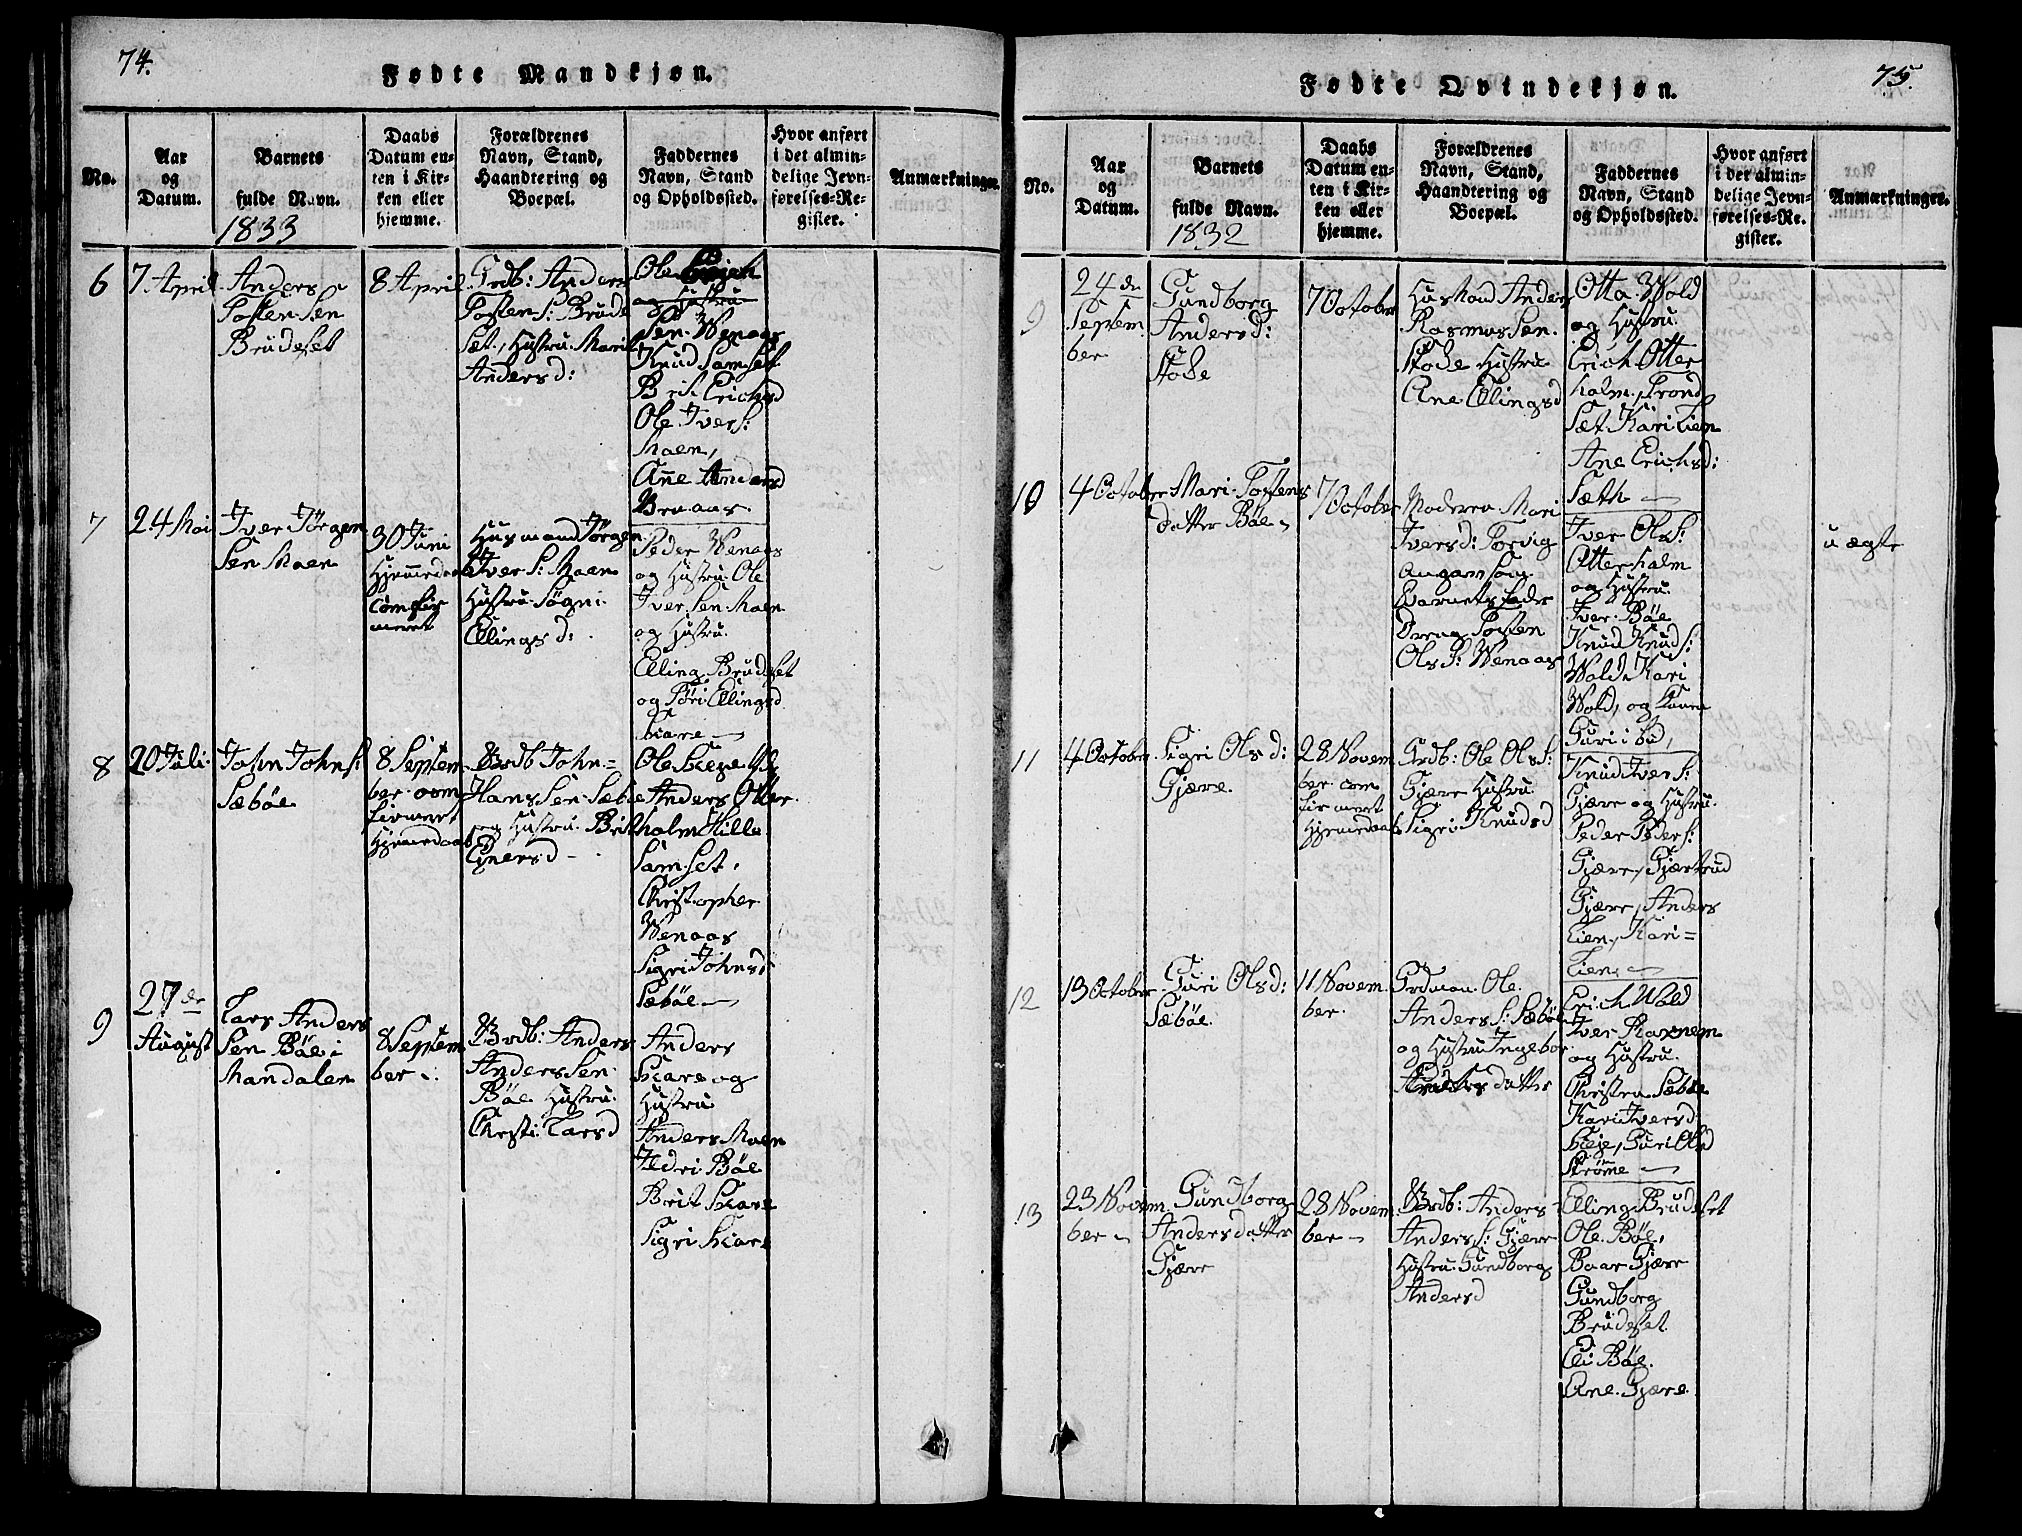 74.
Fødte Mandkjøn.
No.
Aar
og
Datum.
Barnets
fulde Navn.
1833
Daabs
Datum en-
ten i Kir-
ken eller
hjemme.
Forældrenes
Navn, Stand,
Haandtering og
Boepæl.
Faddernes
Navn, Stand
og Opholdssted.
Hvor anført
i det almin-
delige Jevn-
førelses-Re-
gister.
Anmærkninger.
6
7 April
Anders
Tosten Sen
Brudeset
8 April
Grdb: Anders
Tosten S: Brude
Sæt, Hustru Marit
Anders d:
Ole
og Hustru
Sen. Wenaas
Knud Samset
Brit Erichsd
Ole Ivers:
Maen,
Ane Andersd
7
24 Mai
Iver Jörgen
Sen Maen
30 Juni
Hjemedaab
comfir
meret
Husmand Jörgen
Iver S: Maen
Hustru Sögni
Ellings d:
Peder Wenaas
og Hustru Ole
Iver Sen Maen
og Hustru.
Elling Brudeset
og Töri Ellingsd
Skare
8
20 Juli
John Johns:
Sæböe
8 Septem
ber com
firmert
Hjemedaab
Brdb John=
Hans Sen Sæböe
og Hustru Brit
Ejnersd
Ole Skeje
Anders Otter
holm Hille
Samset,
Christopher
Wenaas
Sigri Johnsd
Sæböe
9
27de
August
Lars Anders
Sen Böe i
Mandalen
8 Septem
ber
Brdb: Anders
Anders Sen
Böe Hustru
Christi Larsd
Anders
Skare og
Hustru
Anders Maen
Ildri Böe
Brit Skare
Sigri Skare
75.
Fødte Qvindekjøn.
No.
Aar
og
Datum.
Barnets
fulde Navn.
1832
Daabs
Datum en-
ten i Kir-
ken eller
hjemme.
Forældrenes
Navn, Stand,
Haandtering og
Boepæl.
Faddernes
Navn, Stand
og Opholdssted.
Hvor anført
i det almin-
delige Jevn-
førelses-Re-
gister.
Anmærkninger.
9
24de
Septem
ber
Gundborg
Anders d:
7 October
Husmand Anders
Rasmus Sen
Hustru
Ane Ellingsd
Otta Wold
og Hustru
Erich Otter
holm, Trond
Sæt Kari Lien
Ane Erichsd:
Sæth
10
4 October
Mari Tostens
datter Böe
7 October
Moderen Mari
Ivers d: Torvig
Barnets Fader
Dreng Tosten
Ols S: Wenaas
Iver Ols S:
Otterholm
og Hustru
Iver Böe
Knud Knud S:
Wold Kari
Wold, og
Guri i bid,
u ægte
11
4 October
Sigri Ols d:
Gjære
28 Novem
ber com
firmert
Hjemedaab
Grdb: Ole Ols S:
Gjære Hustru
Sigri Knudsd
Knud Iver S:
Gjære og Hustru
Peder Peders:
Gjære, Gjertrud
Gjære, Anders
Lien, Kari=
Lien
12
13 October
Guri Ols d:
Sæböe
11 Novem
ber.
Grdman Ole
Anders S: Sæböe
og Hustru Ingebor
Erich Wold
Iver Ravnem
og Hustru
Christen Sæböe
Kari Iversd
Skeje, Guri Olsd
Ströme
13
23 Novem
ber
Gundborg
Andersdatter
Gjære
28 Novem
ber
Brdb: Anders
Anders S: Gjære
Hustru Gundborg
Andersd
Elling Brudeset
Ole Böe,
Baar Gjære
Gundborg
Brudeset
Eli Böe
Ane Gjære